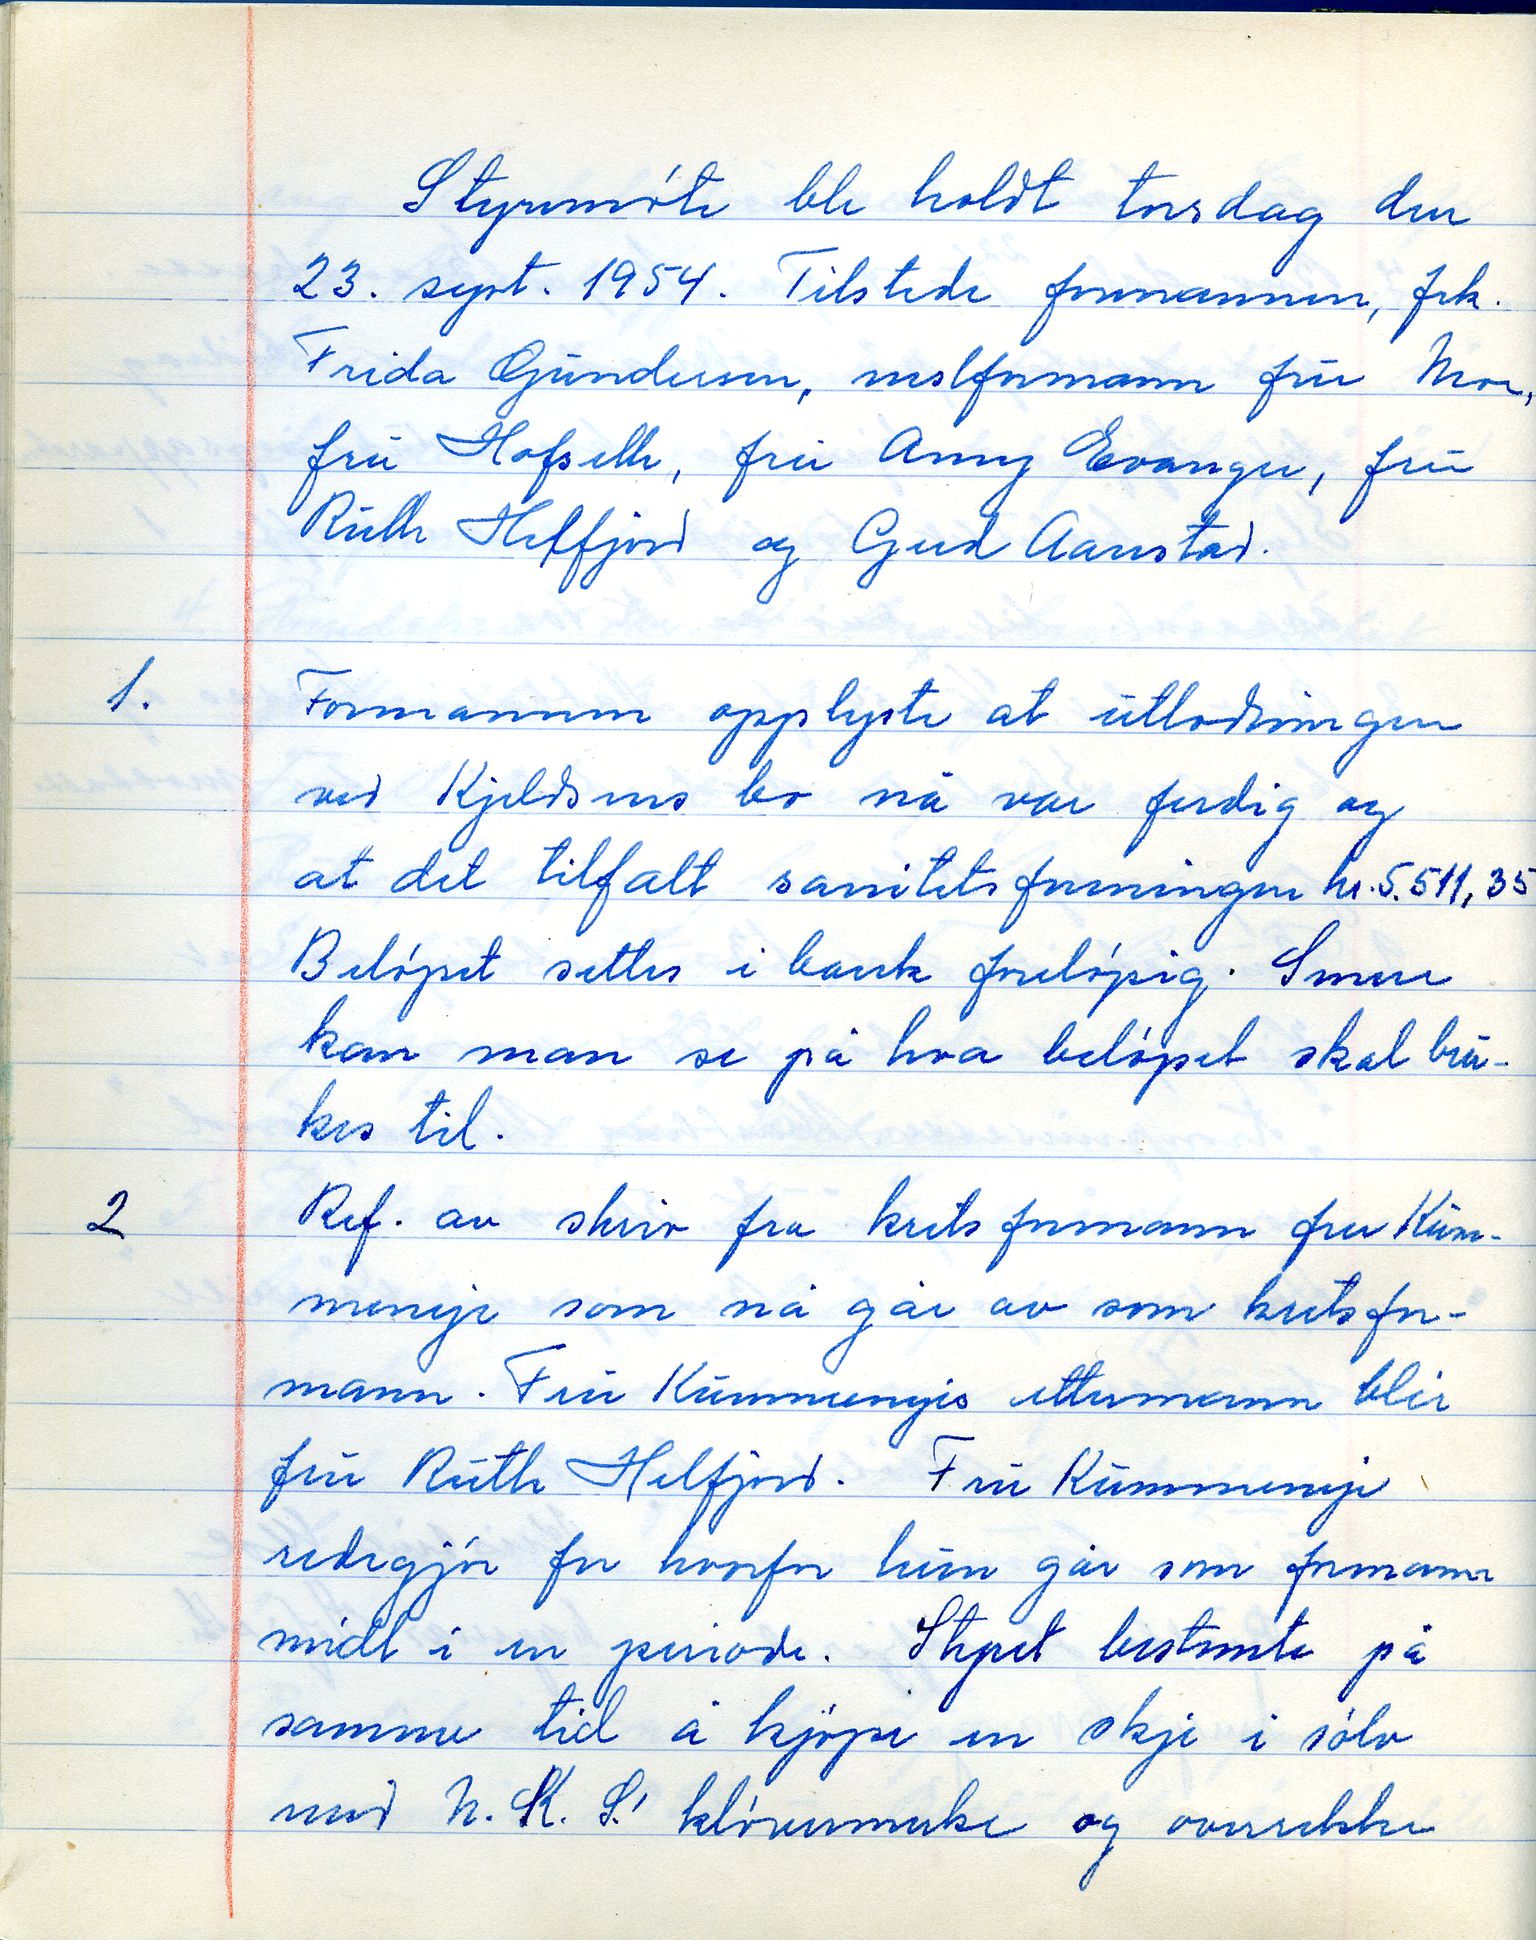 Styremøte ble holdt torsdag den
23. sept. 1954. Tilstede formannen, frk.
Frida Gundersen, nestformann fru Moe,
fru Hofseth, fru Anny Evanger, fru
Ruth Helfjord og Gerd Aarstad.
1. Formannen opplyste at utlodningen
ved Kjeldsens bo nå var ferdig og
at det tilfalt sanitetsforeningen kr. 5.511,35
Beløpet settes i bank foreløpig. Senere
kan man se på hva beløpet skal bru-
kes til.
2 Ref. av skriv fra kretsformann fru Küm-
meneje som nå går av som kretsfor-
mann. Fru Kummenejes ettermann blir
fru Ruth Helfjord. Fru Kummeneje
redegjør for hvorfor hun går som formann
midt i en periode. Styret bestemte på
samme tid å kjøpe en skje i sølv
med N. K. S.' kløvermerke og overrekke